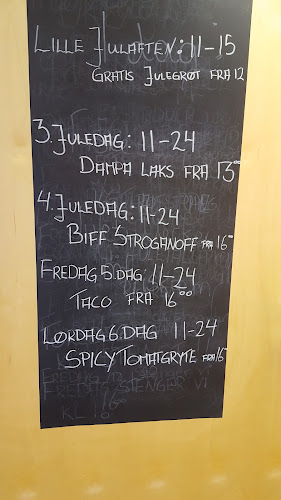 LILLE JULAFTEN: 11-15
GRATIS JULEGRØT FRA 12
3. JULEDAG: 11-24
DAMPA LAKS FRA 15⁰⁰
4. JULEDAG: 11-24
BIFF STROGANOFF FRA 16⁰⁰
FREDAG 5. DAG 11-24
TACO FRA 16⁰⁰
LØRDAG 6. DAG 11-24
SPICY TOMATGRYTE FRA 16
FREDAG STENGER VI
KL 16⁰⁰